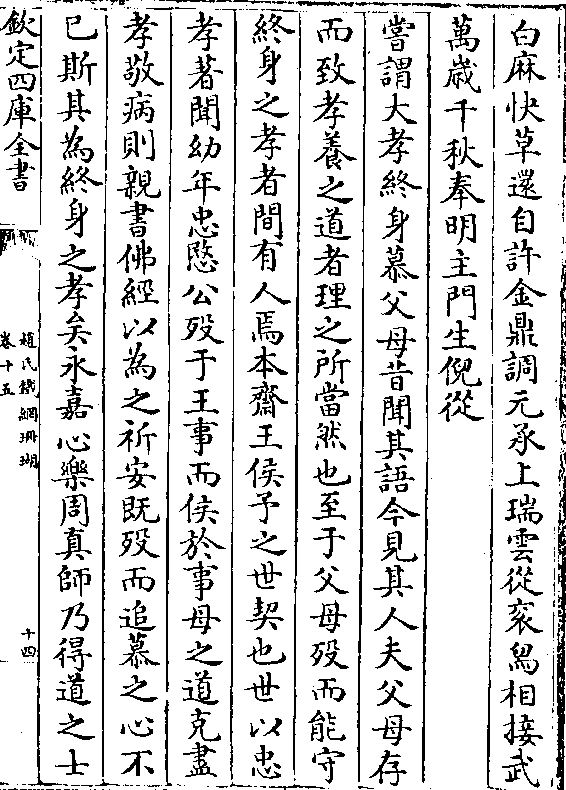 白麻快草還自許金鼎調元承上瑞雲從衮舄相接武
萬歳千秋奉明主門生倪從
嘗謂大孝終身慕父母昔聞其語今見其人夫父母存
而致孝養之道者理之所當然也至于父母殁而能守
終身之孝者間有人焉本齋王侯予之世契也世以忠
孝著聞幼年忠愍公殁于王事而侯於事母之道克盡
孝敬病則親書佛經以為之祈安既殁而追慕之心不
已斯其為終身之孝矣永嘉心樂周真師乃得道之士
欽定四庫全書
趙氏鐵網珊瑚
卷十五
十四